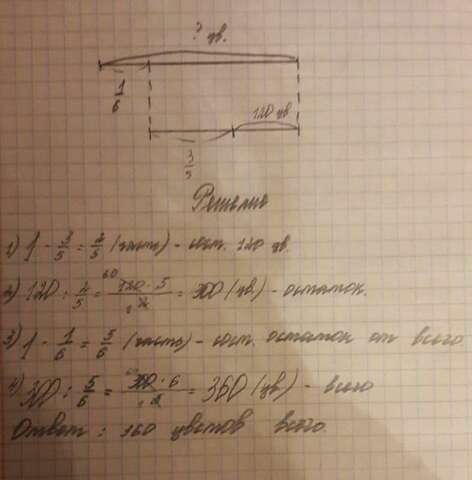 ? цв.
1/6
120 цв
3/5
Решение
1) 1 - 3/5 = 2/5 (часть) - сост. 120 цв.
2) 120 : 2/5 = 60 120 · 5 / 1 2 = 300 (цв.) - остаток.
3) 1 - 1/6 = 5/6 (часть) - сост. остаток от всего
4) 300 : 5/6 = 300 · 6 / 1 = 360 (цв) - всего
Ответ: 360 цветов всего.